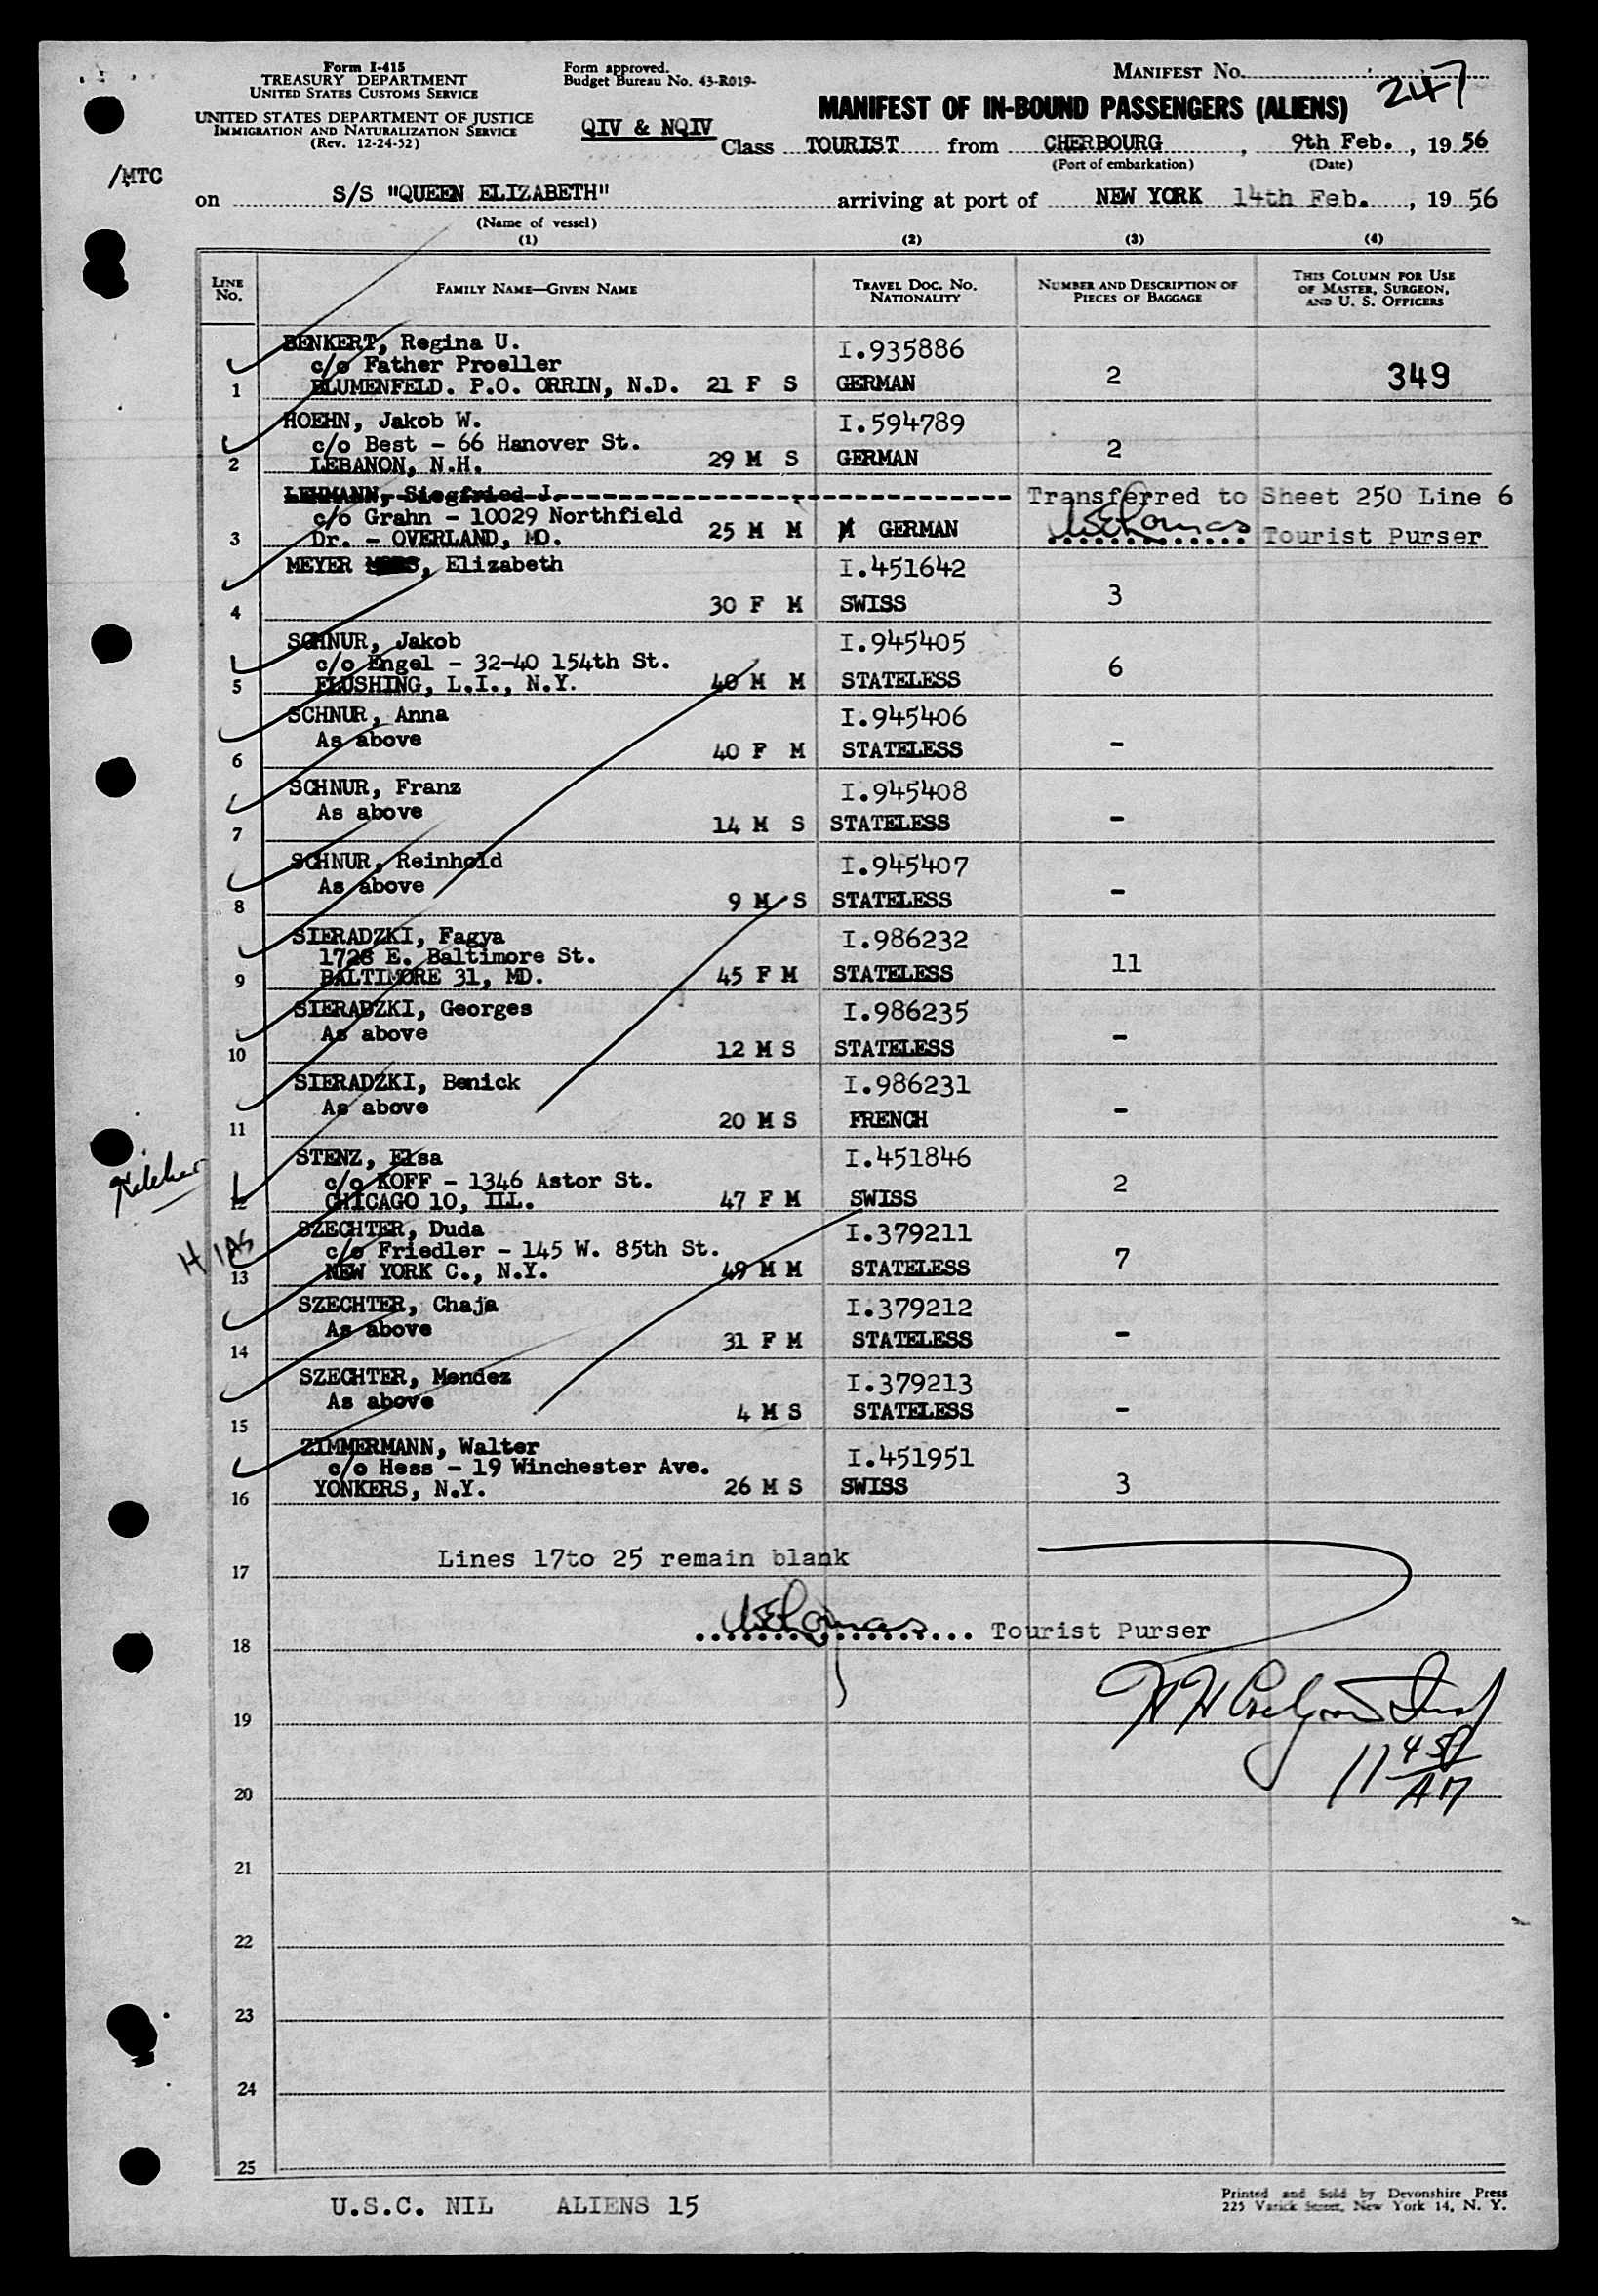 Form I-415
TREASURY DEPARTMENT
UNITED STATES CUSTOMS SERVICE
UNITED STATES DEPARTMENT OF JUSTICE
IMMIGRATION AND NATURALIZATION SERVICE
(Rev. 12-24-52)
Form approved.
Budget Bureau No. 43-R019-
MANIFEST No. 247
MANIFEST OF IN-BOUND PASSENGERS (ALIENS)
QIV & NQIV
Class TOURIST from CHERBOURG, 9th Feb., 1956
(Port of embarkation) (Date)
/MTC
on S/S "QUEEN ELIZABETH" arriving at port of NEW YORK 14th Feb., 1956
(Name of vessel)
(1) (2) (3) (4)
LINE No. FAMILY NAME—GIVEN NAME TRAVEL DOC. NO. NATIONALITY NUMBER AND DESCRIPTION OF PIECES OF BAGGAGE THIS COLUMN FOR USE OF MASTER, SURGEON, AND U. S. OFFICERS
BENKERT, Regina U. I.935886
c/o Father Proeller
1 BLUMENFELD. P.O. ORRIN, N.D. 21 F S GERMAN 2 349
HOEHN, Jakob W. I.594789
c/o Best - 66 Hanover St.
2 LEBANON, N.H. 29 M S GERMAN 2
LEHMANN, Siegfried J. Transferred to Sheet 250 Line 6
c/o Grahn - 10029 Northfield
3 Dr. - OVERLAND, MO. 25 M M GERMAN Tourist Purser
MEYER, Elizabeth I.451642
4 30 F M SWISS 3
SCHNUR, Jakob I.945405
c/o Engel - 32-40 154th St.
5 FLUSHING, L.I., N.Y. 40 M M STATELESS 6
SCHNUR, Anna I.945406
As above
6 40 F M STATELESS -
SCHNUR, Franz I.945408
As above
7 14 M S STATELESS -
SCHNUR, Reinhold I.945407
As above
8 9 M S STATELESS -
SIERADZKI, Fagya I.986232
1728 E. Baltimore St.
9 BALTIMORE 31, MD. 45 F M STATELESS 11
SIERADZKI, Georges I.986235
As above
10 12 M S STATELESS -
SIERADZKI, Benick I.986231
As above
11 20 M S FRENCH -
STENZ, Elsa I.451846
c/o KOFF - 1346 Astor St.
12 CHICAGO 10, ILL. 47 F M SWISS 2
SZECHTER, Duda I.379211
HIAS
c/o Friedler - 145 W. 85th St.
13 NEW YORK C., N.Y. 49 M M STATELESS 7
SZECHTER, Chaja I.379212
As above
14 31 F M STATELESS -
SZECHTER, Mendez I.379213
As above
15 4 M S STATELESS -
ZIMMERMANN, Walter I.451951
c/o Hess - 19 Winchester Ave.
16 YONKERS, N.Y. 26 M S SWISS 3
17 Lines 17to 25 remain blank
Tourist Purser
18
19
11 45 AM
20
21
22
23
24
25
U.S.C. NIL ALIENS 15
Printed and Sold by Devonshire Press
225 Varick Street, New York 14, N. Y.